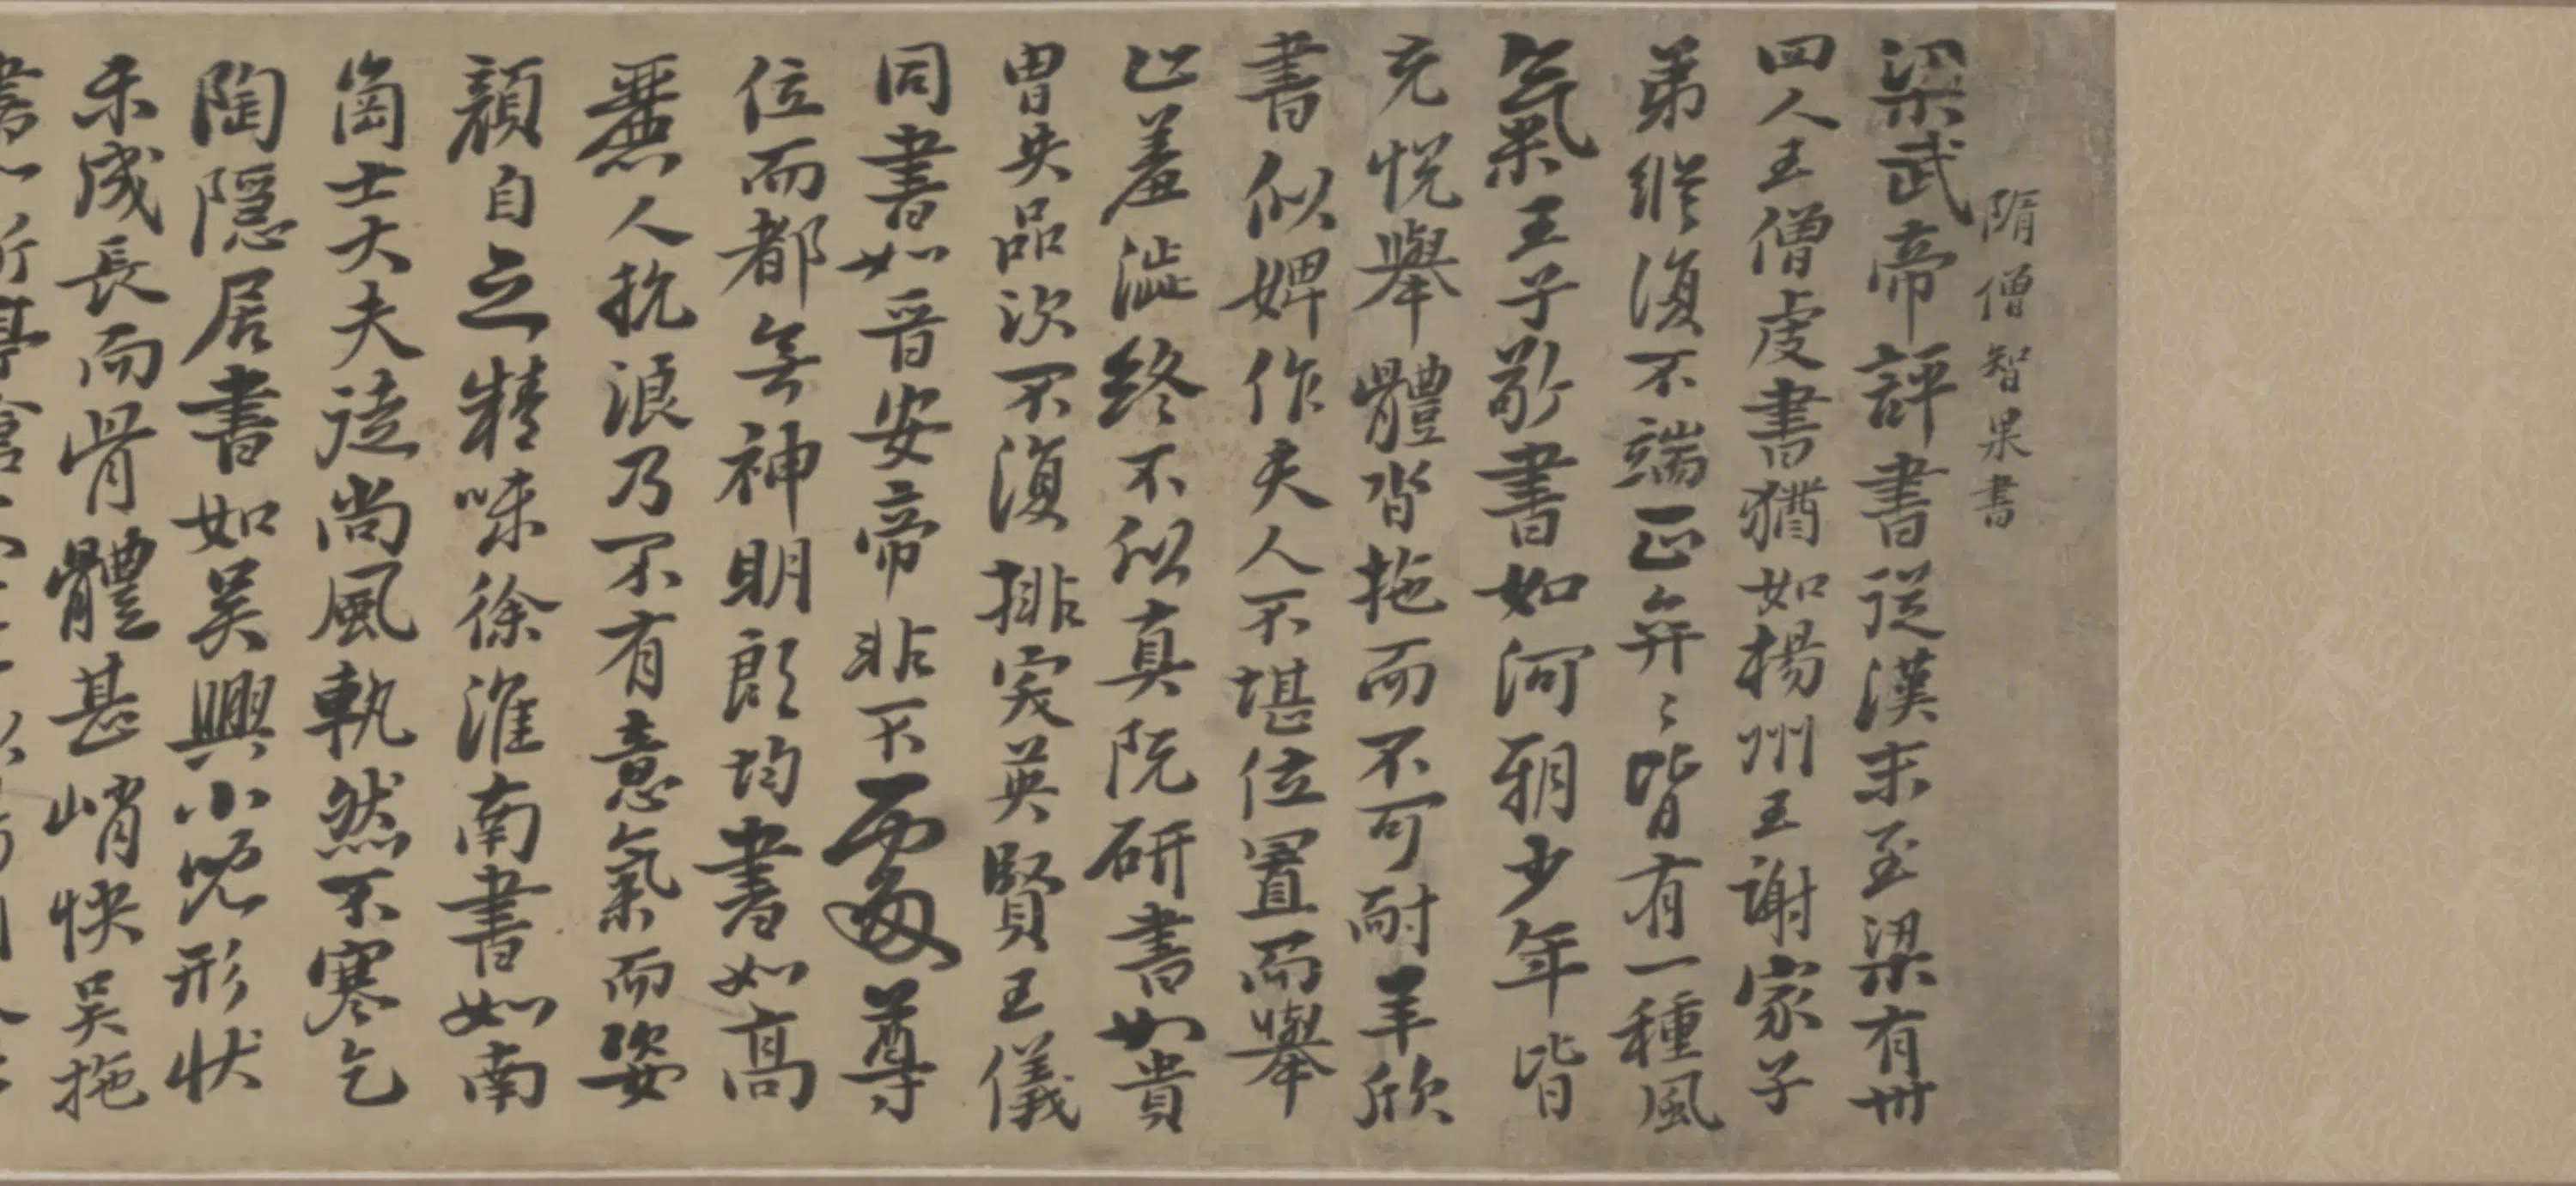 隋僧智果書
梁武帝評書從漢末至梁有卅
四人王僧虔書猶如楊州王謝家子
弟縱復不端正弈〻皆有一種風
氣王子敬書如河朔少年皆
充悅舉體沓拖而不可耐羊欣
書似婢作夫人不堪位置而舉
止羞澁終不似真阮研書如貴
胄失品次不復排突英賢王儀
同書如晉安帝非不處尊
位而都無神明郎均書如高
麗人抗浪乃不有意氣而姿
顏自乏精味徐淮南書如南
崗士大夫徒尚風執然不寒乞
陶隱居書如吳興小兒形狀
未成長而骨體甚峭快吳拖